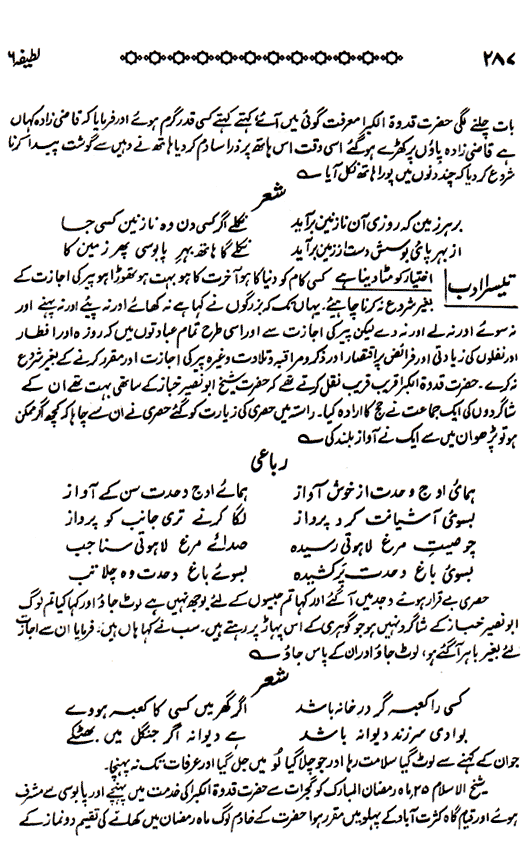 ۲۸۷ لطیفہ ۶
بات چلنے لگی حضرت قدوۃ الکبرا معرفت گوئی میں آئے کہتے کہتے کسی قدر گرم ہوئے اور فرمایا کہ قاضی زادہ کہاں
ہے قاضی زادہ پاؤں پر کھڑے ہوگئے اسی وقت اس ہاتھ پر ذرا سا دم کر دیا ہاتھ نے وہیں سے گوشت پیدا کرنا
شروع کر دیا کہ چند دنوں میں پورا ہاتھ نکل آیا
شعر
بر ہر زمین کہ روزی آن نازنین برآید نکلے اگر کسی دن وہ نازنین کسی جا
از بہر پائی بوسش دست از زمین برآید نکلے گا ہاتھ بہر پابوسی پھر زمین کا
تیسرا ادب اختیار کو مٹا دینا ہے کسی کام کو دنیا کا ہو آخرت کا ہو بہت ہو تھوڑا ہو پیر کی اجازت کے
بغیر شروع نہ کرنا چاہئے یہاں تک کہ بزرگوں نے کہا ہے نہ کھائے اور نہ پئے اور نہ پہنے اور
نہ سوئے اور نہ لے اور نہ دے لیکن پیر کی اجازت سے اور اسی طرح تمام عبادتوں میں کہ روزہ اور افطار
اور نفلوں کی زیادتی اور فرائض پر اختصار اور ذکر و مراقبہ و تلاوت وغیرہ پیر کی اجازت اور مقرر کرنے کے بغیر شروع
نہ کرے۔ حضرت قدوۃ الکبرا قریب قریب نقل کرتے تھے کہ حضرت شیخ ابو نصیر خباز کے ساتھی بہت تھے ان کے
شاگردوں کی ایک جماعت نے حج کا ارادہ کیا۔ راستہ میں حصری کی زیارت کو گئے حصری نے ان سے چاہا کہ کچھ اگر ممکن
ہو تو پڑھو ان میں سے ایک نے آواز بلند کی
رباعی
ہمائ اوج وحدت از خوش آواز ہمائے اوج وحدت سن کے آواز
بسوئ آشیانت کرد پرواز لگا کرنے تری جانب کو پرواز
چو صیت مرغ لاہوتی رسیدہ صدائے مرغ لاہوتی سنا جب
بسوئ باغ وحدت پر کشیدہ بسوئے باغ وحدت وہ چلا تب
حصری بے قرار ہوئے وجد میں آگئے اور کہا تم جیسوں کے لئے بوجھ نہیں ہے لوٹ جاؤ اور کہا کیا تم لوگ
ابو نصیر خباز کے شاگرد نہیں ہو جو گوہری کے اس پہاڑ پر رہتے ہیں۔ سب نے کہا ہاں ہیں۔ فرمایا ان سے اجازت
لئے بغیر باہر آگئے ہو، لوٹ جاؤ اور ان کے پاس جاؤ
شعر
کسی را کعبہ گر در خانہ باشد اگر گھر میں کسی کا کعبہ ہووے
بوادی سر زند دیوانہ باشد ہے دیوانہ اگر جنگل میں بھٹکے
جو ان کے کہنے سے لوٹ گیا سلامت رہا اور جو چلا گیا لُو میں جل گیا اور عرفات تک نہ پہنچا۔
شیخ الاسلام ۲۵ ماہ رمضان المبارک کو گجرات سے حضرت قدوۃ الکبرا کی خدمت میں پہنچے اور پابوسی سے مشرف
ہوئے اور قیام گاہ کثرت آباد کے پہلو میں مقرر ہوا حضرت کے خادم لوگ ماہ رمضان میں کھانے کی تقسیم دو نماز کے